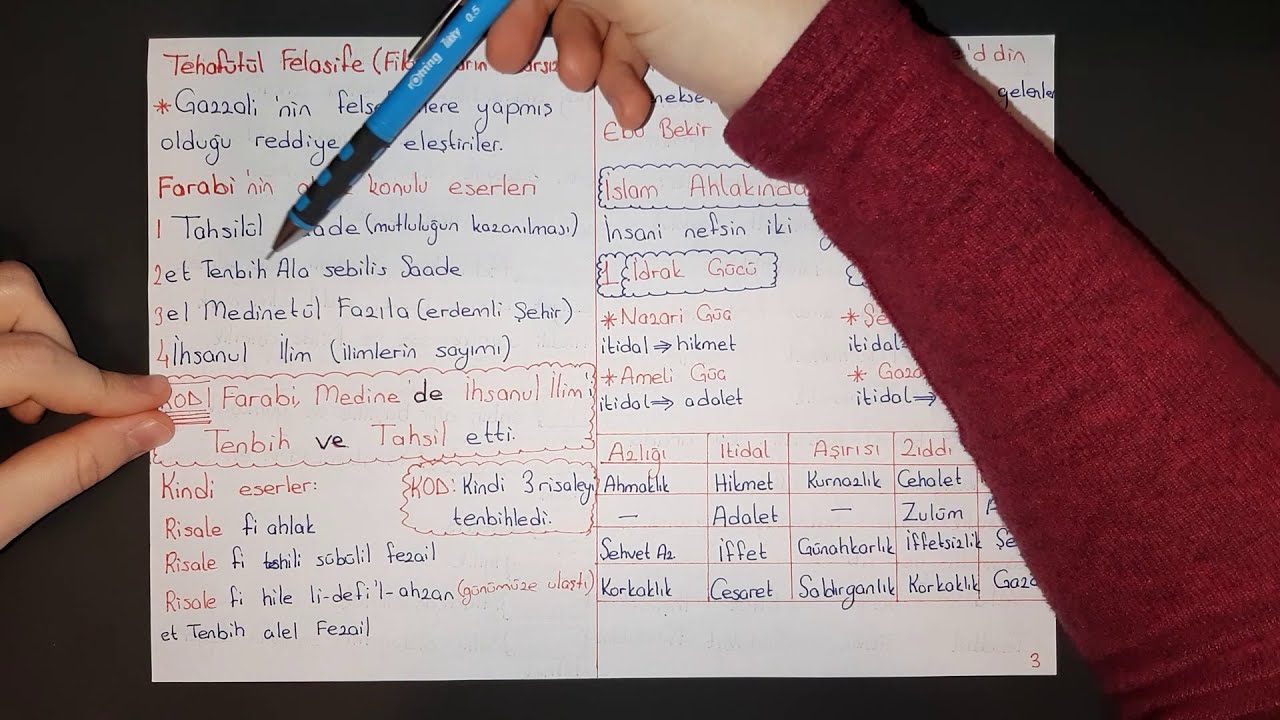 Tehafütül Felasife
* Gazzali'nin yapmış
olduğu reddiye eleştiriler.
Farabi'nin konulu eserleri
1 Tahsilül (mutluluğun kazanılması)
2 et Tenbih Ala sebilis Saade
3 el Medinetül Fazıla (erdemli Şehir)
4 İhsanul İlim (ilimlerin sayımı)
KOD! Farabi, Medine'de İhsanul İlim'i
Tenbih ve Tahsil etti.
Kindi eserler:
KOD: Kindi 3 risaleyi
tenbihledi.
Risale fi ahlak
Risale fi teshili sübülil fezail
Risale fi hile li-defi'l-ahzan (günümüze ulaştı)
et Tenbih alel Fezail
rotring Tikky 0.5
gelenler
Ebu Bekir
İslam Ahlakında
İnsani nefsin iki
1 İdrak Gücü
* Nazari Güç
itidal ⇒ hikmet
* Ameli Güç
itidal ⇒ adalet
itidal
itidal ⇒
Azlığı İtidal Aşırısı Zıddı
Ahmaklık Hikmet Kurnazlık Cehalet
— Adalet — Zulüm
Şehvet Az İffet Günahkarlık İffetsizlik
Korkaklık Cesaret Saldırganlık Korkaklık
3